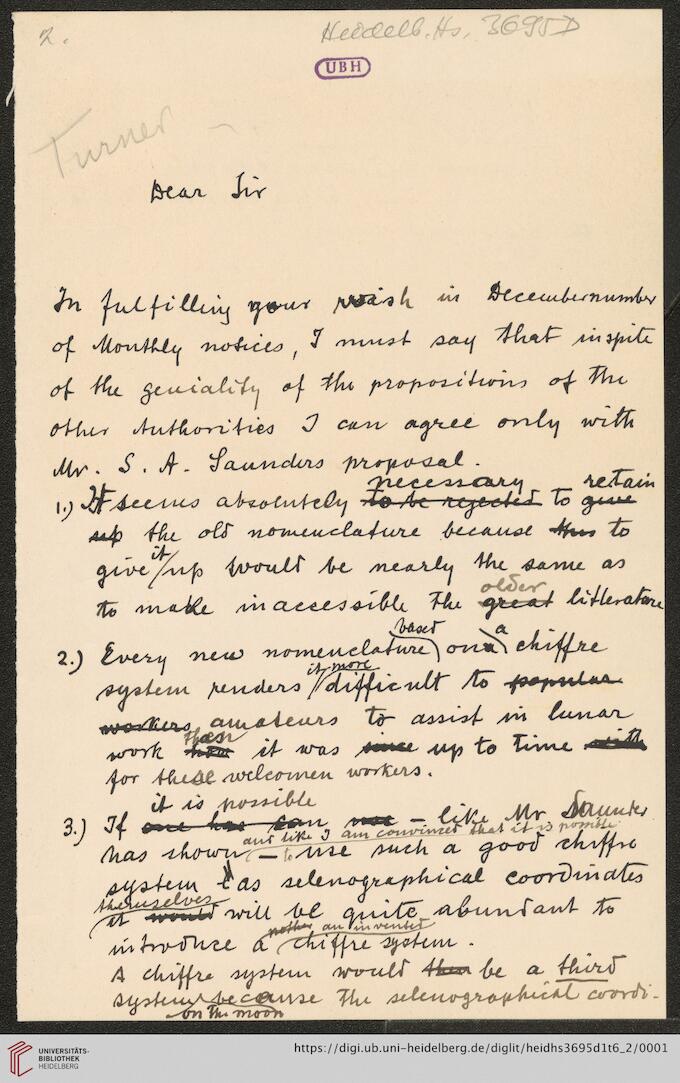 2.
Heidelb. Hs. 3695 D
UBH
Turner
Dear Sir
In fulfilling your wish in Decembernumber
of Monthly notices, I must say that inspite
of the geniality of the propositions of the
other Authorities I can agree only with
Mr. S. A. Saunders proposal.
necessary retain
1.) It seems absolutely to be rejected to give
up the old nomenclature because this to
it
give up would be nearly the same as
older
to make inaccessible the great litterature
based a
2.) Every new nomenclature on a chiffre
it more
system renders difficult to popular
workers amateurs to assist in lunar
than
work how it was since up to time with
for these welcomen workers.
it is possible
3.) If one has can use - like Mr Saunder
and like I am convinced that it is possible
has shown - to use such a good chiffre
system as selenographical coordinates
themselves
it would will be quite abundant to
another an invented
introduce a chiffre system.
A chiffre system would then be a third
system because the selenographical coordi-
on the moon
UNIVERSITÄTS-
BIBLIOTHEK
HEIDELBERG
https://digi.ub.uni-heidelberg.de/diglit/heidhs3695d1t6_2/0001